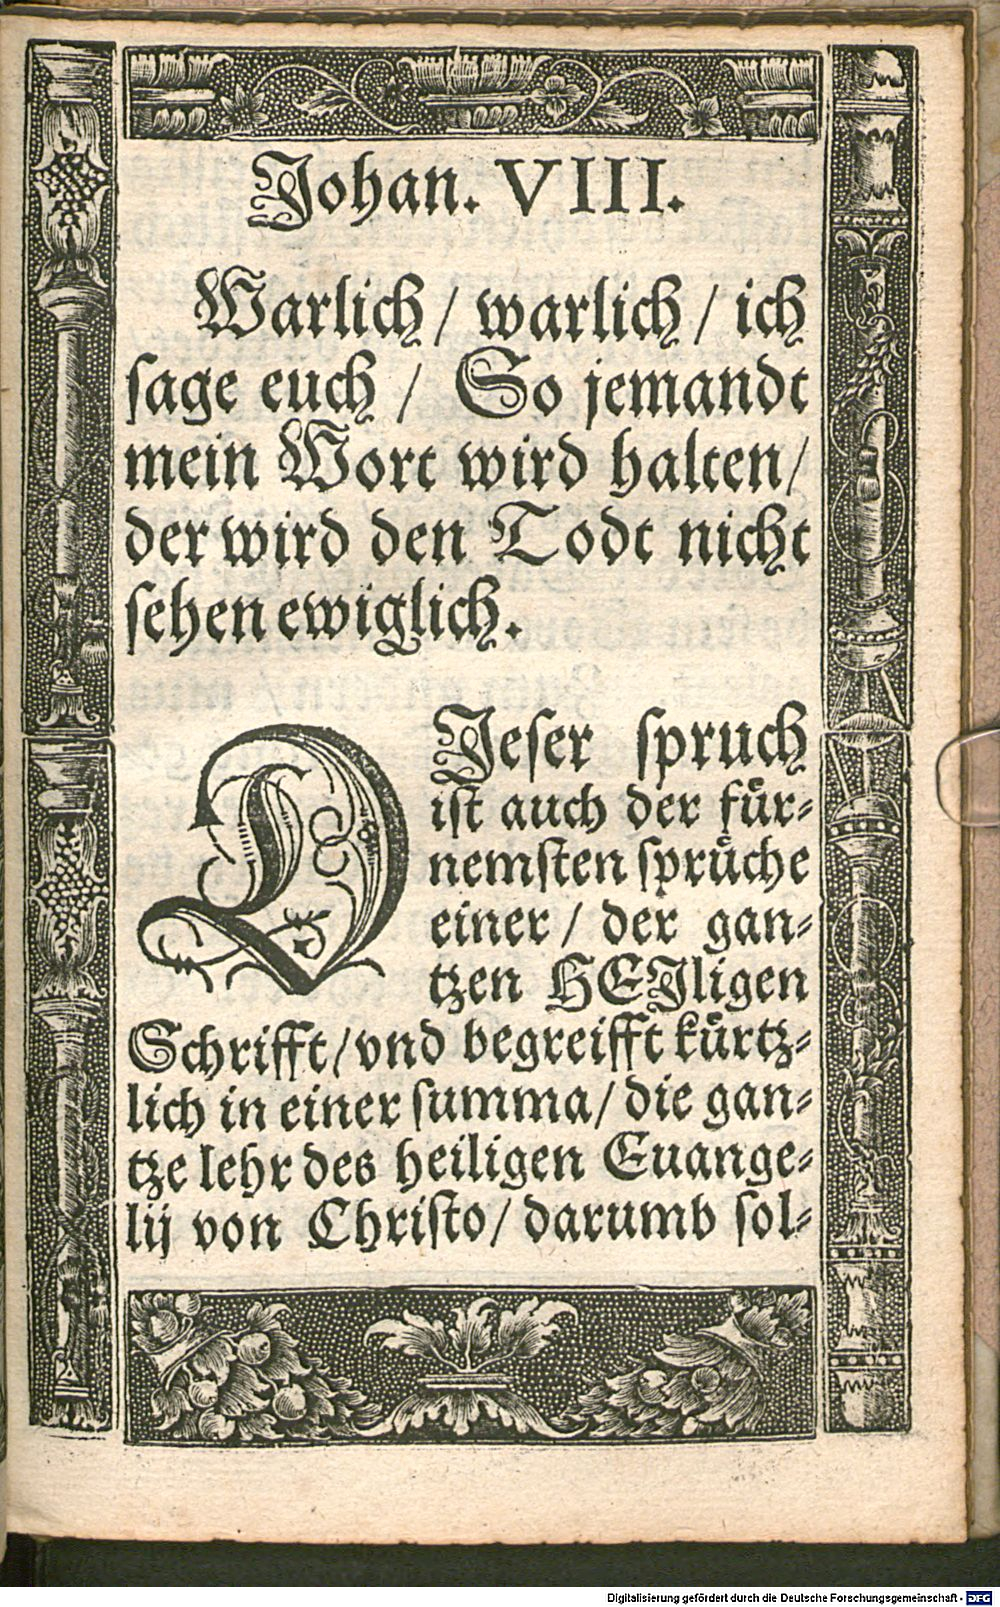 Johan. VIII.
Warlich / warlich / ich
sage euch / So jemandt
mein Wort wird halten /
der wird den Todt nicht
sehen ewiglich.
DJeser spruch
ist auch der fuͤr⸗
nemsten spruͤche
einer / der gan⸗
tzen HEJligen
Schrifft / vnd begreifft kuͤrtz⸗
lich in einer summa / die gan⸗
tze lehr des heiligen Euange⸗
lij von Christo / darumb sol⸗
Digitalisierung gefördert durch die Deutsche Forschungsgemeinschaft - DFG